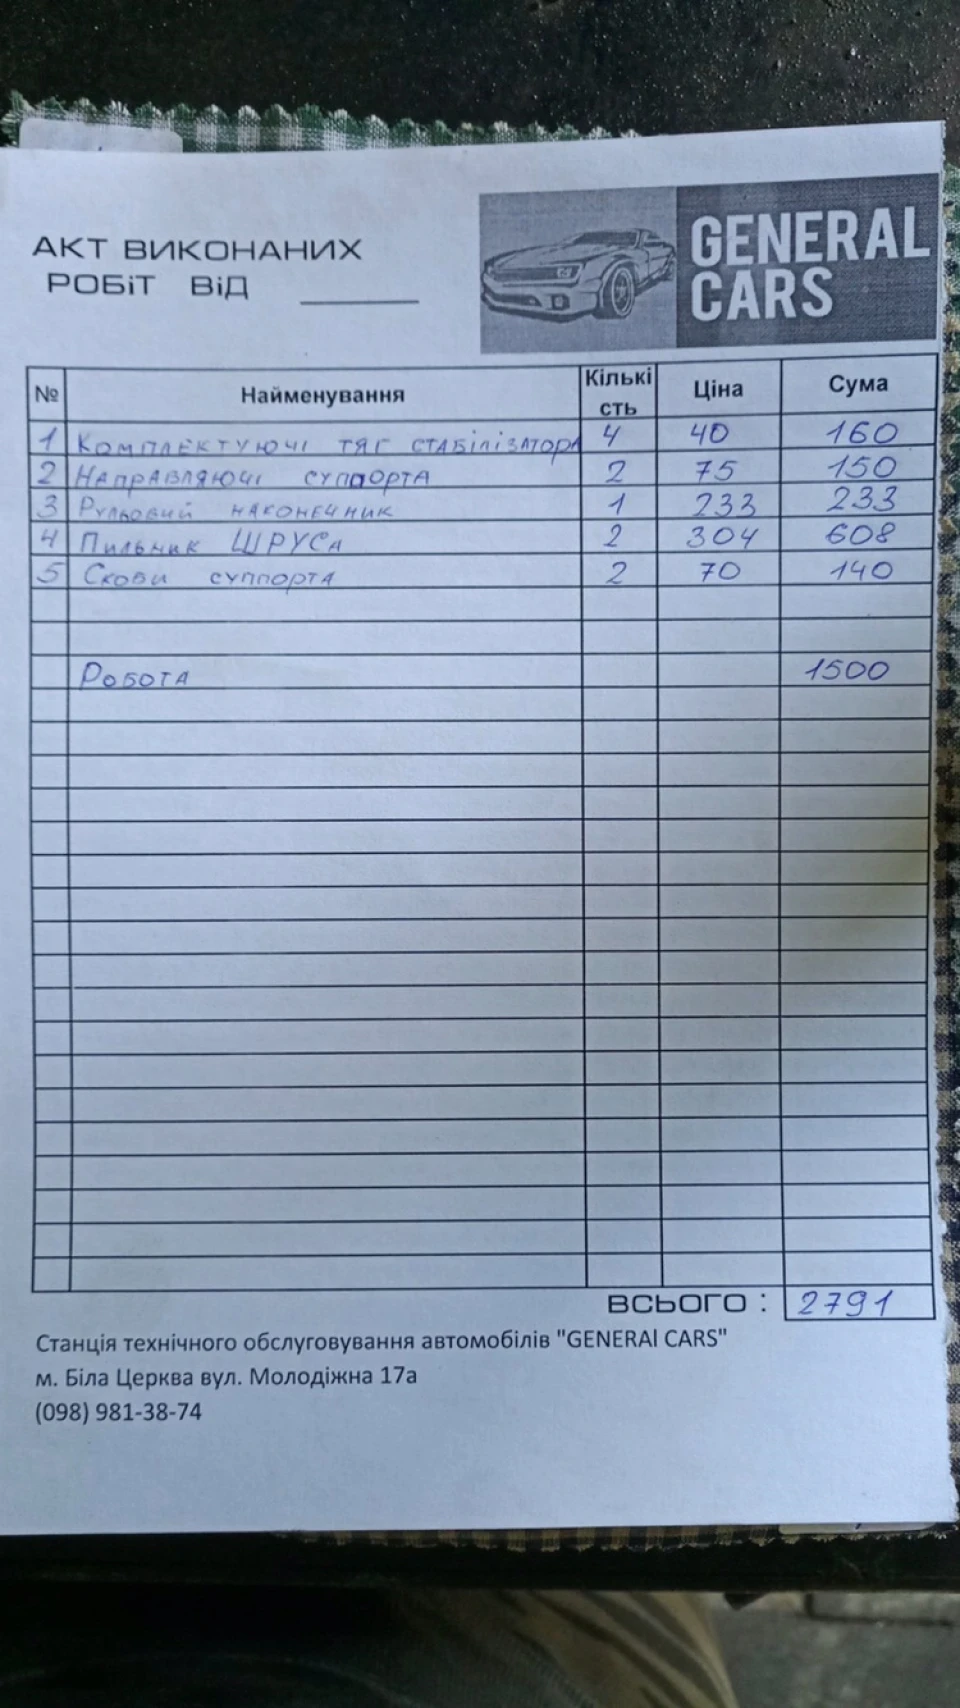 АКТ ВИКОНАНИХ
РОБІТ ВІД
GENERAL
CARS
№ Найменування Кількість Ціна Сума
1 Комплектуючі тяг стабілізатора 4 40 160
2 Направляючі суппорта 2 75 150
3 Рульовий наконечник 1 233 233
4 Пильник ШРУСа 2 304 608
5 Скоби суппорта 2 70 140
Робота 1500
ВСЬОГО : 2791
Станція технічного обслуговування автомобілів "GENERAl CARS"
м. Біла Церква вул. Молодіжна 17а
(098) 981-38-74